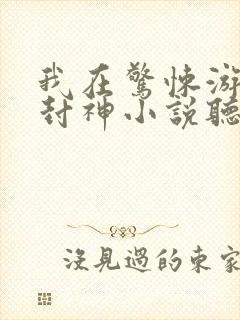 我在驚悚游
封神小說聽
沒見過的東家